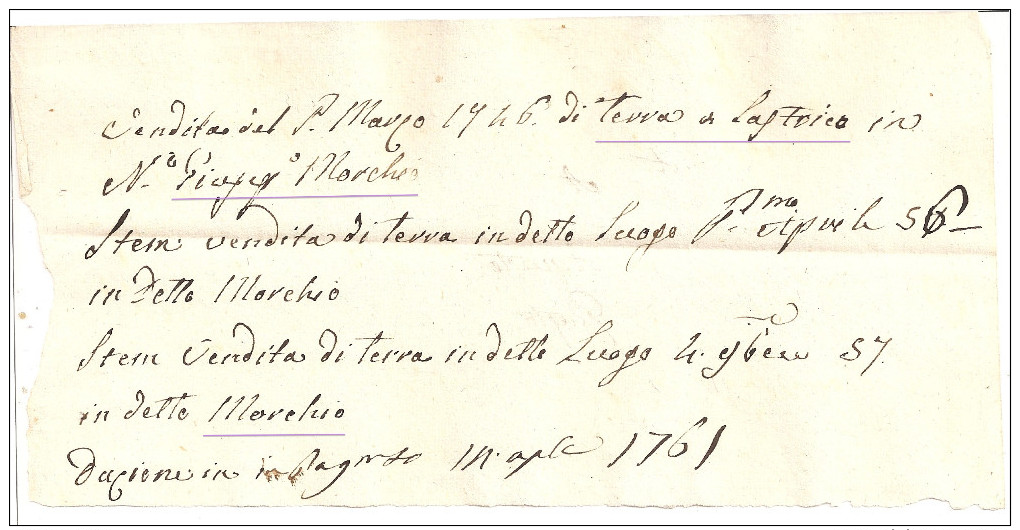 Vendita del P. Marzo 1746. di terra a Lastrico in
N.º Morchio
Item vendita di terra in detto Luogo P.mo Aprile 56
in Detto Morchio
Item Vendita di terra in detto Luogo 4. 9bre 57.
in detto Morchio
Dazione in 1761